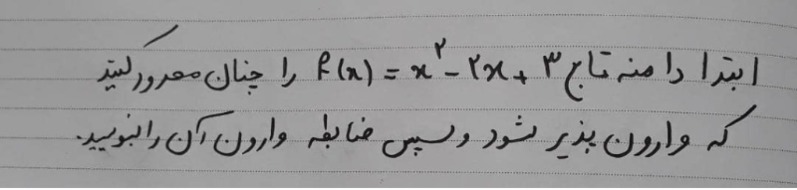 ابتدا دامنه تابع f(x) = x² - ۲x + ۳ را چنان محدود کنید
که وارون پذیر شود و سپس ضابطه وارون آن را بنویسید.